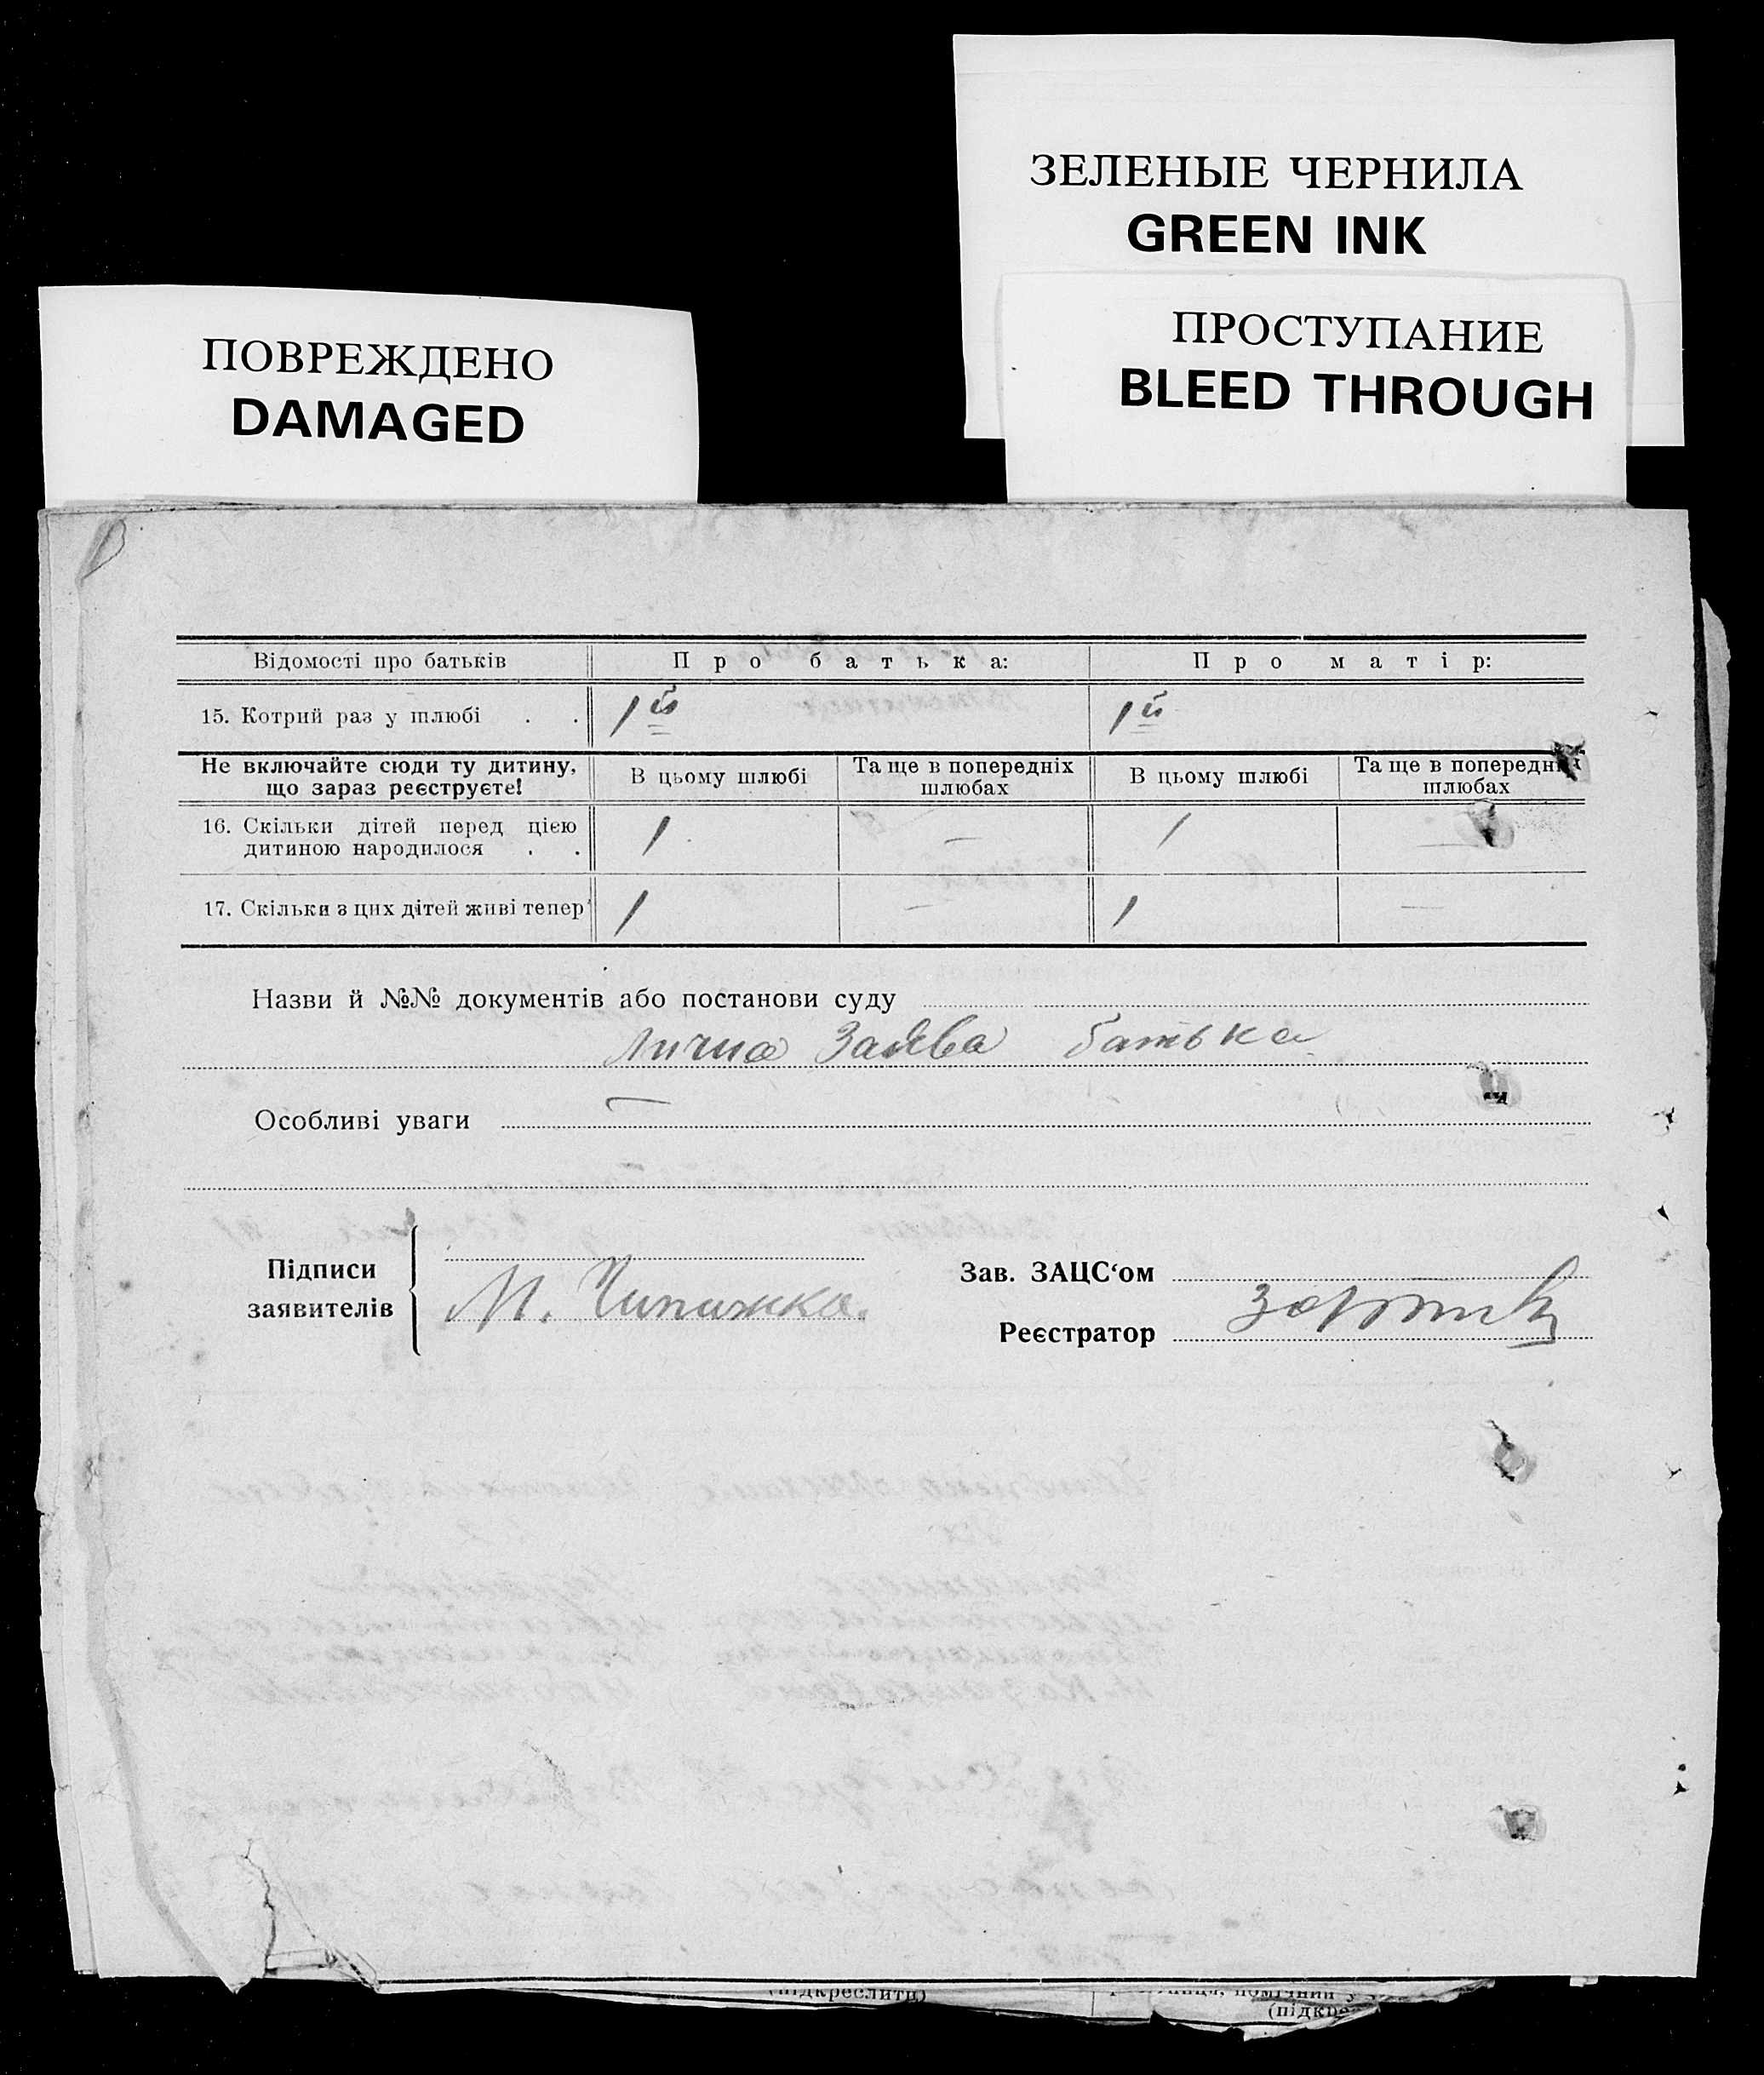 ЗЕЛЕНЫЕ ЧЕРНИЛА
GREEN INK
ПРОСТУПАНИЕ
BLEED THROUGH
ПОВРЕЖДЕНО
DAMAGED
Відомості про батьків Про батька: Про матір:
15. Котрий раз у шлюбі . . 1й 1й
Не включайте сюди ту дитину, що зараз реєструєте! В цьому шлюбі Та ще в попередніх шлюбах В цьому шлюбі Та ще в попередніх шлюбах
16. Скільки дітей перед цією
дитиною народилося . . 1 — 1 —
17. Скільки з цих дітей живі тепер 1 — 1 —
Назви й №№ документів або постанови суду
Лична Заява батька
Особливі уваги —
Підписи
заявителів
М. Чипижка.
Зав. ЗАЦС‘ом
Реєстратор
(підкреслити)